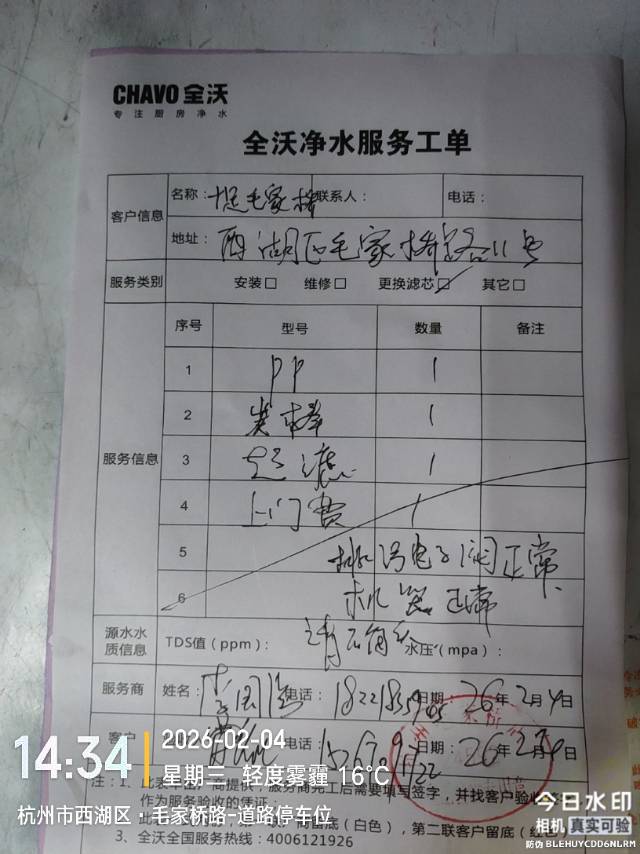 CHAVO 全沃
专注厨房净水
全沃净水服务工单
客户信息 名称： 毛家桥 联系人： 电话：
地址： 西湖区毛家桥路11号
服务类别 安装□ 维修□ 更换滤芯☑ 其它□
服务信息 序号 型号 数量 备注
1 PP 1
2 炭棒 1
3 超滤 1
4 上门费 1
5 排污电子阀正常
6 机器正常
源水水质信息 TDS值（ppm）： 水压（mpa）：
服务商 姓名： 李国 电话： 日期： 26年2月4日
客户 电话： 日期： 26年2月4日
注：1、此表单 厂商提供，服务商完工后需要填写签字，并找客户验收签
作为服务验收的凭证；
留底（白色），第二联客户留底（红色）
3、全沃全国服务热线：4006121926
14:34
2026-02-04
星期三 轻度雾霾 16℃
杭州市西湖区·毛家桥路-道路停车位
今日水印
相机 真实可验
防伪 BLEHUYCDD6NLRM